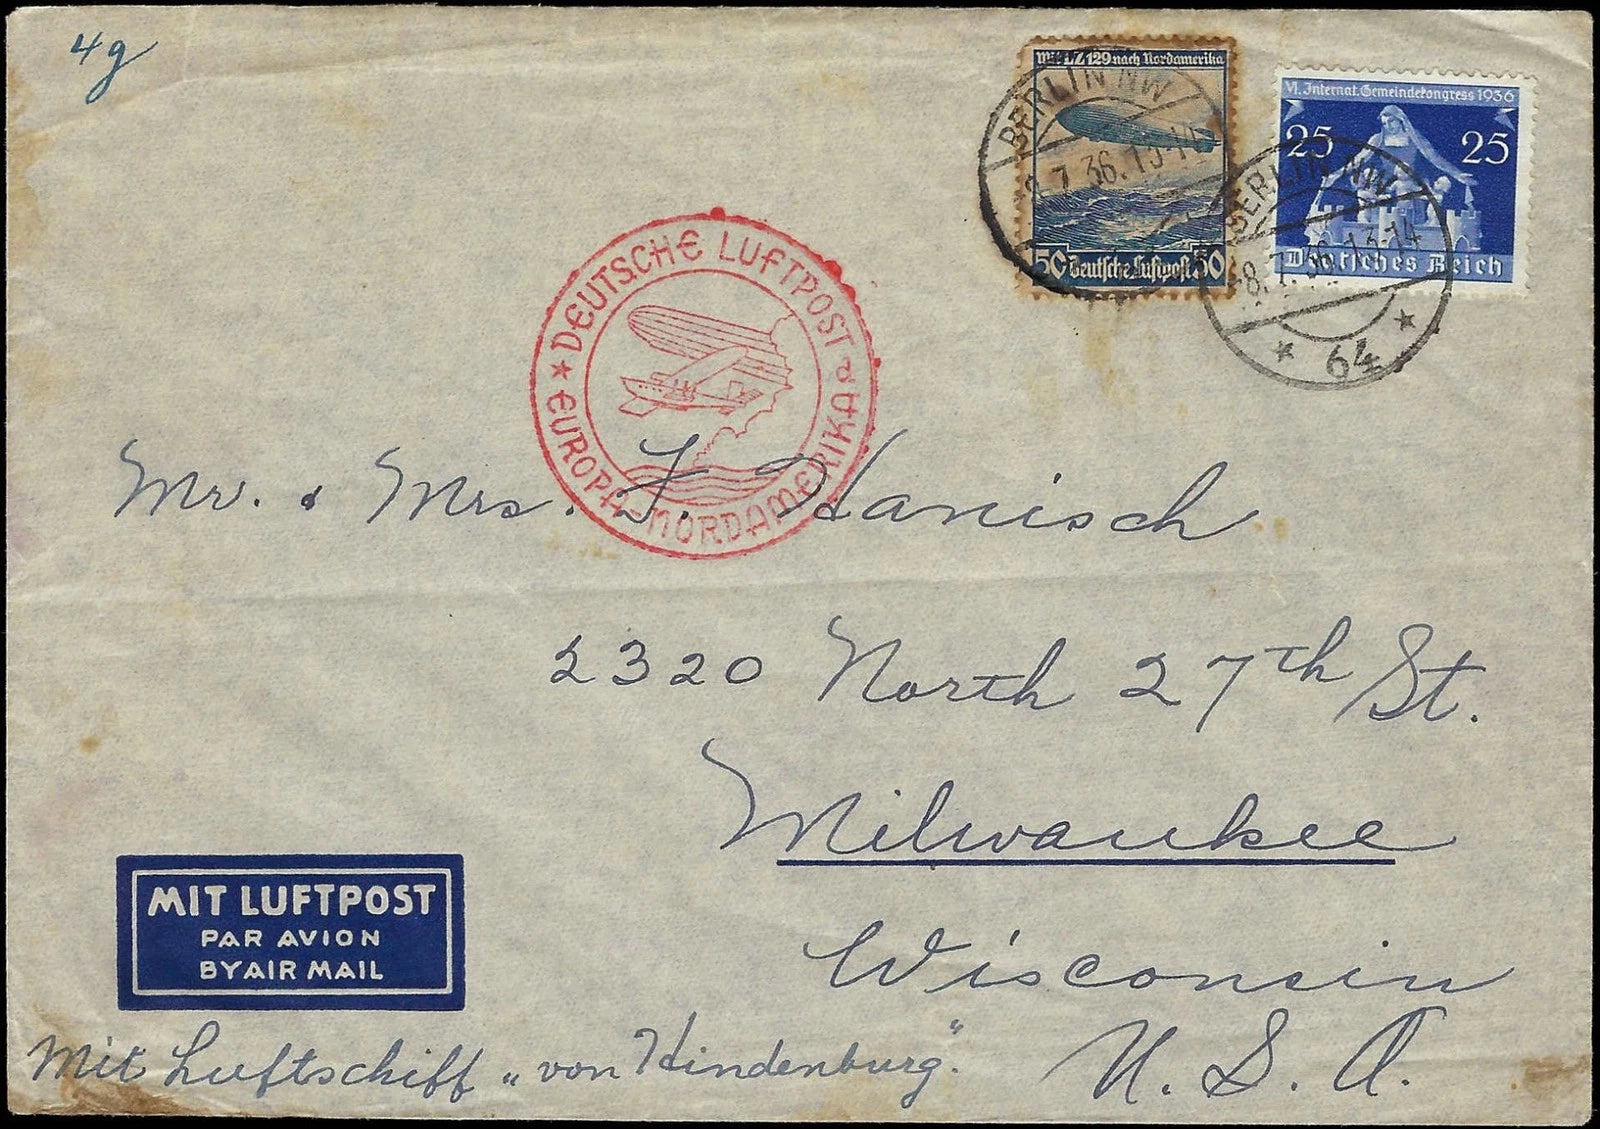 4g
Mit LZ 129 nach Nordamerika
50 Deutsche Luftpost 50
BERLIN NW
7.36.13-14
VI. Internat. Gemeindekongress 1936
25 25
Deutsches Reich
BERLIN NW
8.7.36.13-14
* 64 *
DEUTSCHE LUFTPOST
* EUROPA-NORDAMERIKA
Mr. & Mrs. F. Hanisch
2320 North 27th St.
Milwaukee
Wisconsin
U. S. A.
MIT LUFTPOST
PAR AVION
BY AIR MAIL
Mit Luftschiff „von Hindenburg."